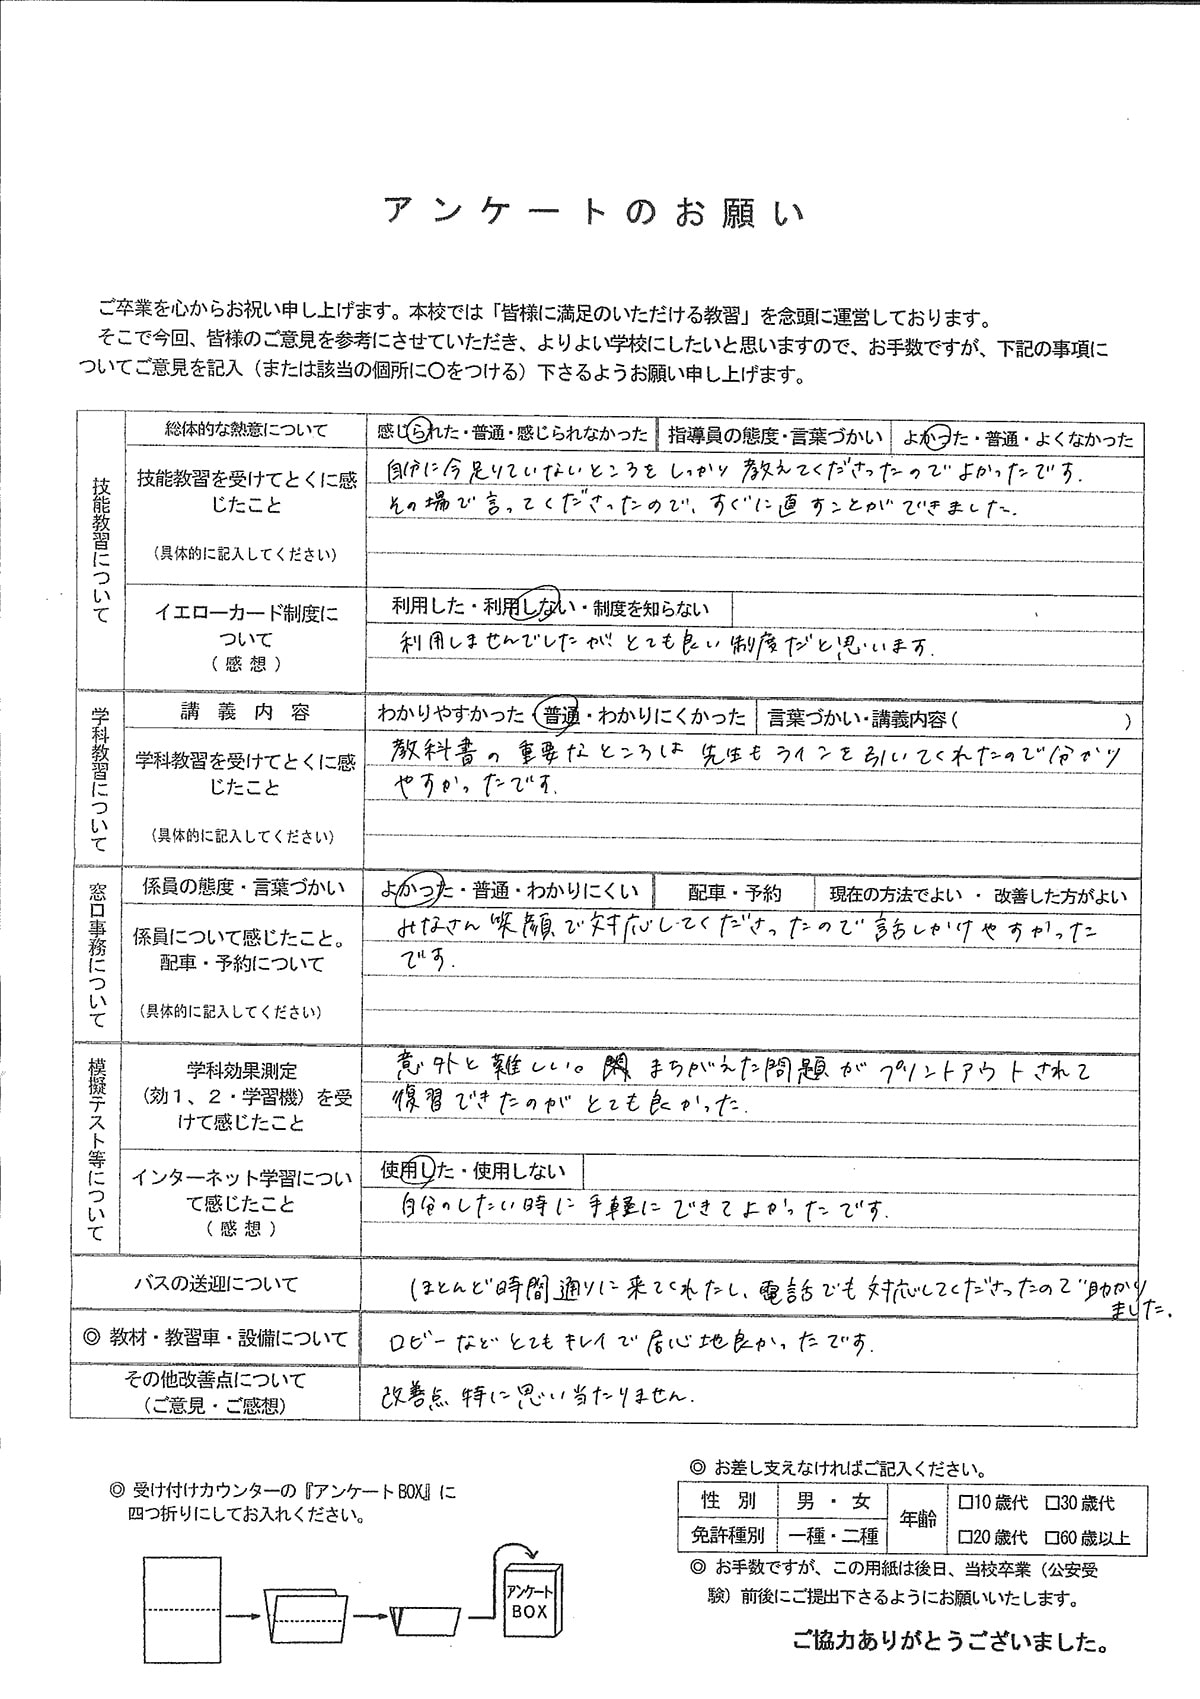 アンケートのお願い
ご卒業を心からお祝い申し上げます。本校では「皆様に満足のいただける教習」を念頭に運営しております。
そこで今回、皆様のご意見を参考にさせていただき、よりよい学校にしたいと思いますので、お手数ですが、下記の事項に
ついてご意見を記入（または該当の個所に〇をつける）下さるようお願い申し上げます。
技能教習について
総体的な熱意について 感じられた・普通・感じられなかった 指導員の態度・言葉づかい よかった・普通・よくなかった
技能教習を受けてとくに感
じたこと
（具体的に記入してください）
自分に今足りていないところをしっかり教えてくださったのでよかったです.
その場で言ってくださったので、すぐに直すことができました.
イエローカード制度に
ついて
（感想）
利用した・利用しない・制度を知らない
利用しませんでしたが、とても良い制度だと思います.
学科教習について
講義内容 わかりやすかった・普通・わかりにくかった 言葉づかい・講義内容（ ）
学科教習を受けてとくに感
じたこと
（具体的に記入してください）
教科書の重要なところは先生もラインを引いてくれたので分かり
やすかったです.
窓口事務について
係員の態度・言葉づかい よかった・普通・わかりにくい 配車・予約 現在の方法でよい ・ 改善した方がよい
係員について感じたこと。
配車・予約について
（具体的に記入してください）
みなさん笑顔で対応してくださったので話しかけやすかった
です.
模擬テスト等について
学科効果測定
（効１、２・学習機）を受
けて感じたこと
意外と難しい。まちがえた問題がプリントアウトされて
復習できたのがとても良かった.
インターネット学習につい
て感じたこと
（感想）
使用した・使用しない
自分のしたい時に手軽にできてよかったです.
バスの送迎について
ほとんど時間通りに来てくれたし、電話でも対応してくださったので助かり
ました.
◎ 教材・教習車・設備について
ロビーなどとてもキレイで居心地良かったです.
その他改善点について
（ご意見・ご感想）
改善点特に思い当たりません.
◎ 受け付けカウンターの『アンケートBOX』に
四つ折りにしてお入れください。
アンケート
BOX
◎ お差し支えなければご記入ください。
性別 男・女 年齢 □10歳代 □30歳代
免許種別 一種・二種 □20歳代 □60歳以上
◎ お手数ですが、この用紙は後日、当校卒業（公安受
験）前後にご提出下さるようにお願いいたします。
ご協力ありがとうございました。